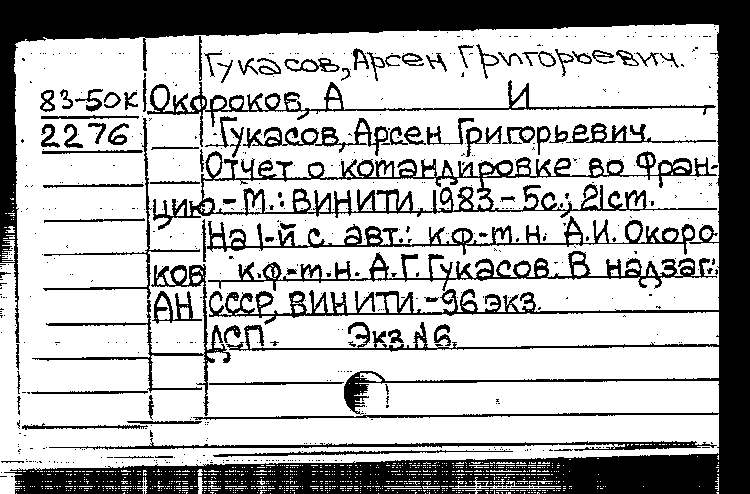 Гукасов, Арсен Григорьевич.
83-50К Окороков, А И
2276 Гукасов, Арсен Григорьевич.
Отчет о командировке во Фран-
цию.-М.: ВИНИТИ, 1983.-5с.; 21ст.
На 1-й с. авт.: к.ф.-т.н. А.И. Окоро
ков к.ф.-т.н. А.Г. Гукасов. В надзаг.:
АН СССР, ВИНИТИ.-96 экз.
ДСП. Экз.№6.